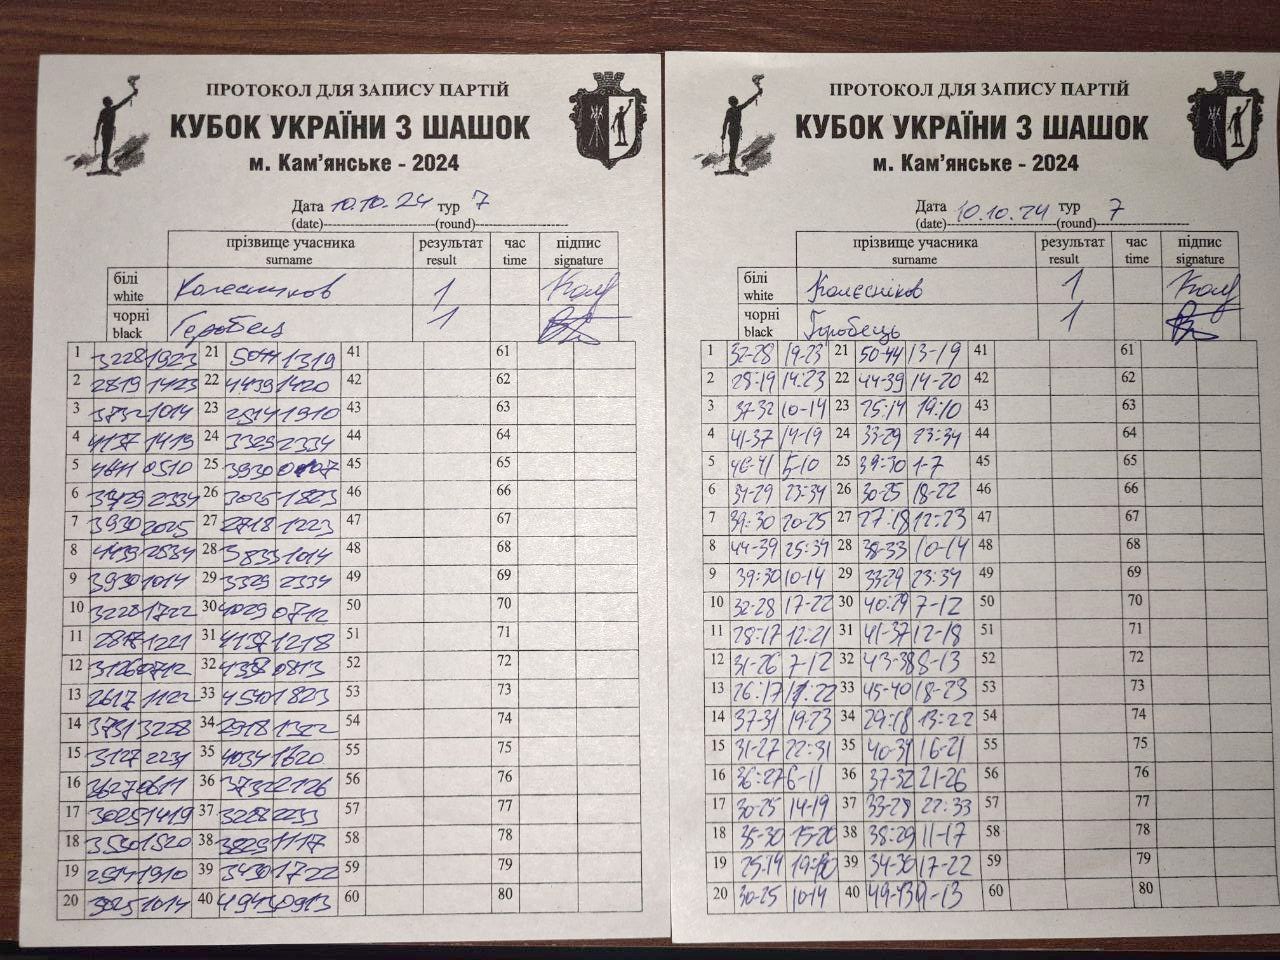 ПРОТОКОЛ ДЛЯ ЗАПИСУ ПАРТІЙ
КУБОК УКРАЇНИ З ШАШОК
м. Кам'янське - 2024
Дата 10.10.24 тур 7
(date) (round)
прізвище учасника результат час підпис
surname result time signature
білі Колесніков 1
white
чорні Горобець 1
black
1 3228 1923 21 5044 1319 41 61
2 2819 1423 22 4439 1420 42 62
3 3732 1014 23 2514 1910 43 63
4 4137 1419 24 3329 2334 44 64
5 4641 0510 25 3930 0107 45 65
6 3429 2334 26 3025 1822 46 66
7 3930 2025 27 2718 1223 47 67
8 4439 2534 28 3833 1014 48 68
9 3930 1014 29 3329 2334 49 69
10 3228 1722 30 4029 0712 50 70
11 2817 1221 31 4137 1218 51 71
12 3126 0712 32 4338 0813 52 72
13 2617 1122 33 4540 1823 53 73
14 3731 3228 34 2918 1322 54 74
15 3127 2231 35 4034 1620 55 75
16 3627 0611 36 3732 2126 56 76
17 3025 1419 37 3228 2233 57 77
18 3530 1520 38 3829 1117 58 78
19 2514 1910 39 3430 1722 59 79
20 3025 1014 40 4943 0913 60 80
ПРОТОКОЛ ДЛЯ ЗАПИСУ ПАРТІЙ
КУБОК УКРАЇНИ З ШАШОК
м. Кам'янське - 2024
Дата 10.10.24 тур 7
(date) (round)
прізвище учасника результат час підпис
surname result time signature
білі Колєсніков 1
white
чорні Горобець 1
black
1 32-28 19-23 21 50-44 13-19 41 61
2 28:19 14:23 22 44-39 14-20 42 62
3 37-32 10-14 23 25:14 19:10 43 63
4 41-37 14-19 24 33-29 23:34 44 64
5 46-41 5-10 25 39:30 1-7 45 65
6 34-29 23:34 26 30-25 18-22 46 66
7 39:30 20-25 27 27:18 12:23 47 67
8 44-39 25:34 28 38-33 10-14 48 68
9 39:30 10-14 29 33-29 23:34 49 69
10 32-28 17-22 30 40:29 7-12 50 70
11 28:17 12:21 31 41-37 12-18 51 71
12 31-26 7-12 32 43-38 8-13 52 72
13 26:17 11:22 33 45-40 18-23 53 73
14 37-31 19-23 34 29:18 13:22 54 74
15 31-27 22:31 35 40-34 16-21 55 75
16 36:27 6-11 36 37-32 21-26 56 76
17 30-25 14-19 37 33-28 22:33 57 77
18 35-30 15-20 38 38:29 11-17 58 78
19 25:14 19:10 39 34-30 17-22 59 79
20 30-25 10-14 40 49-43 9-13 60 80